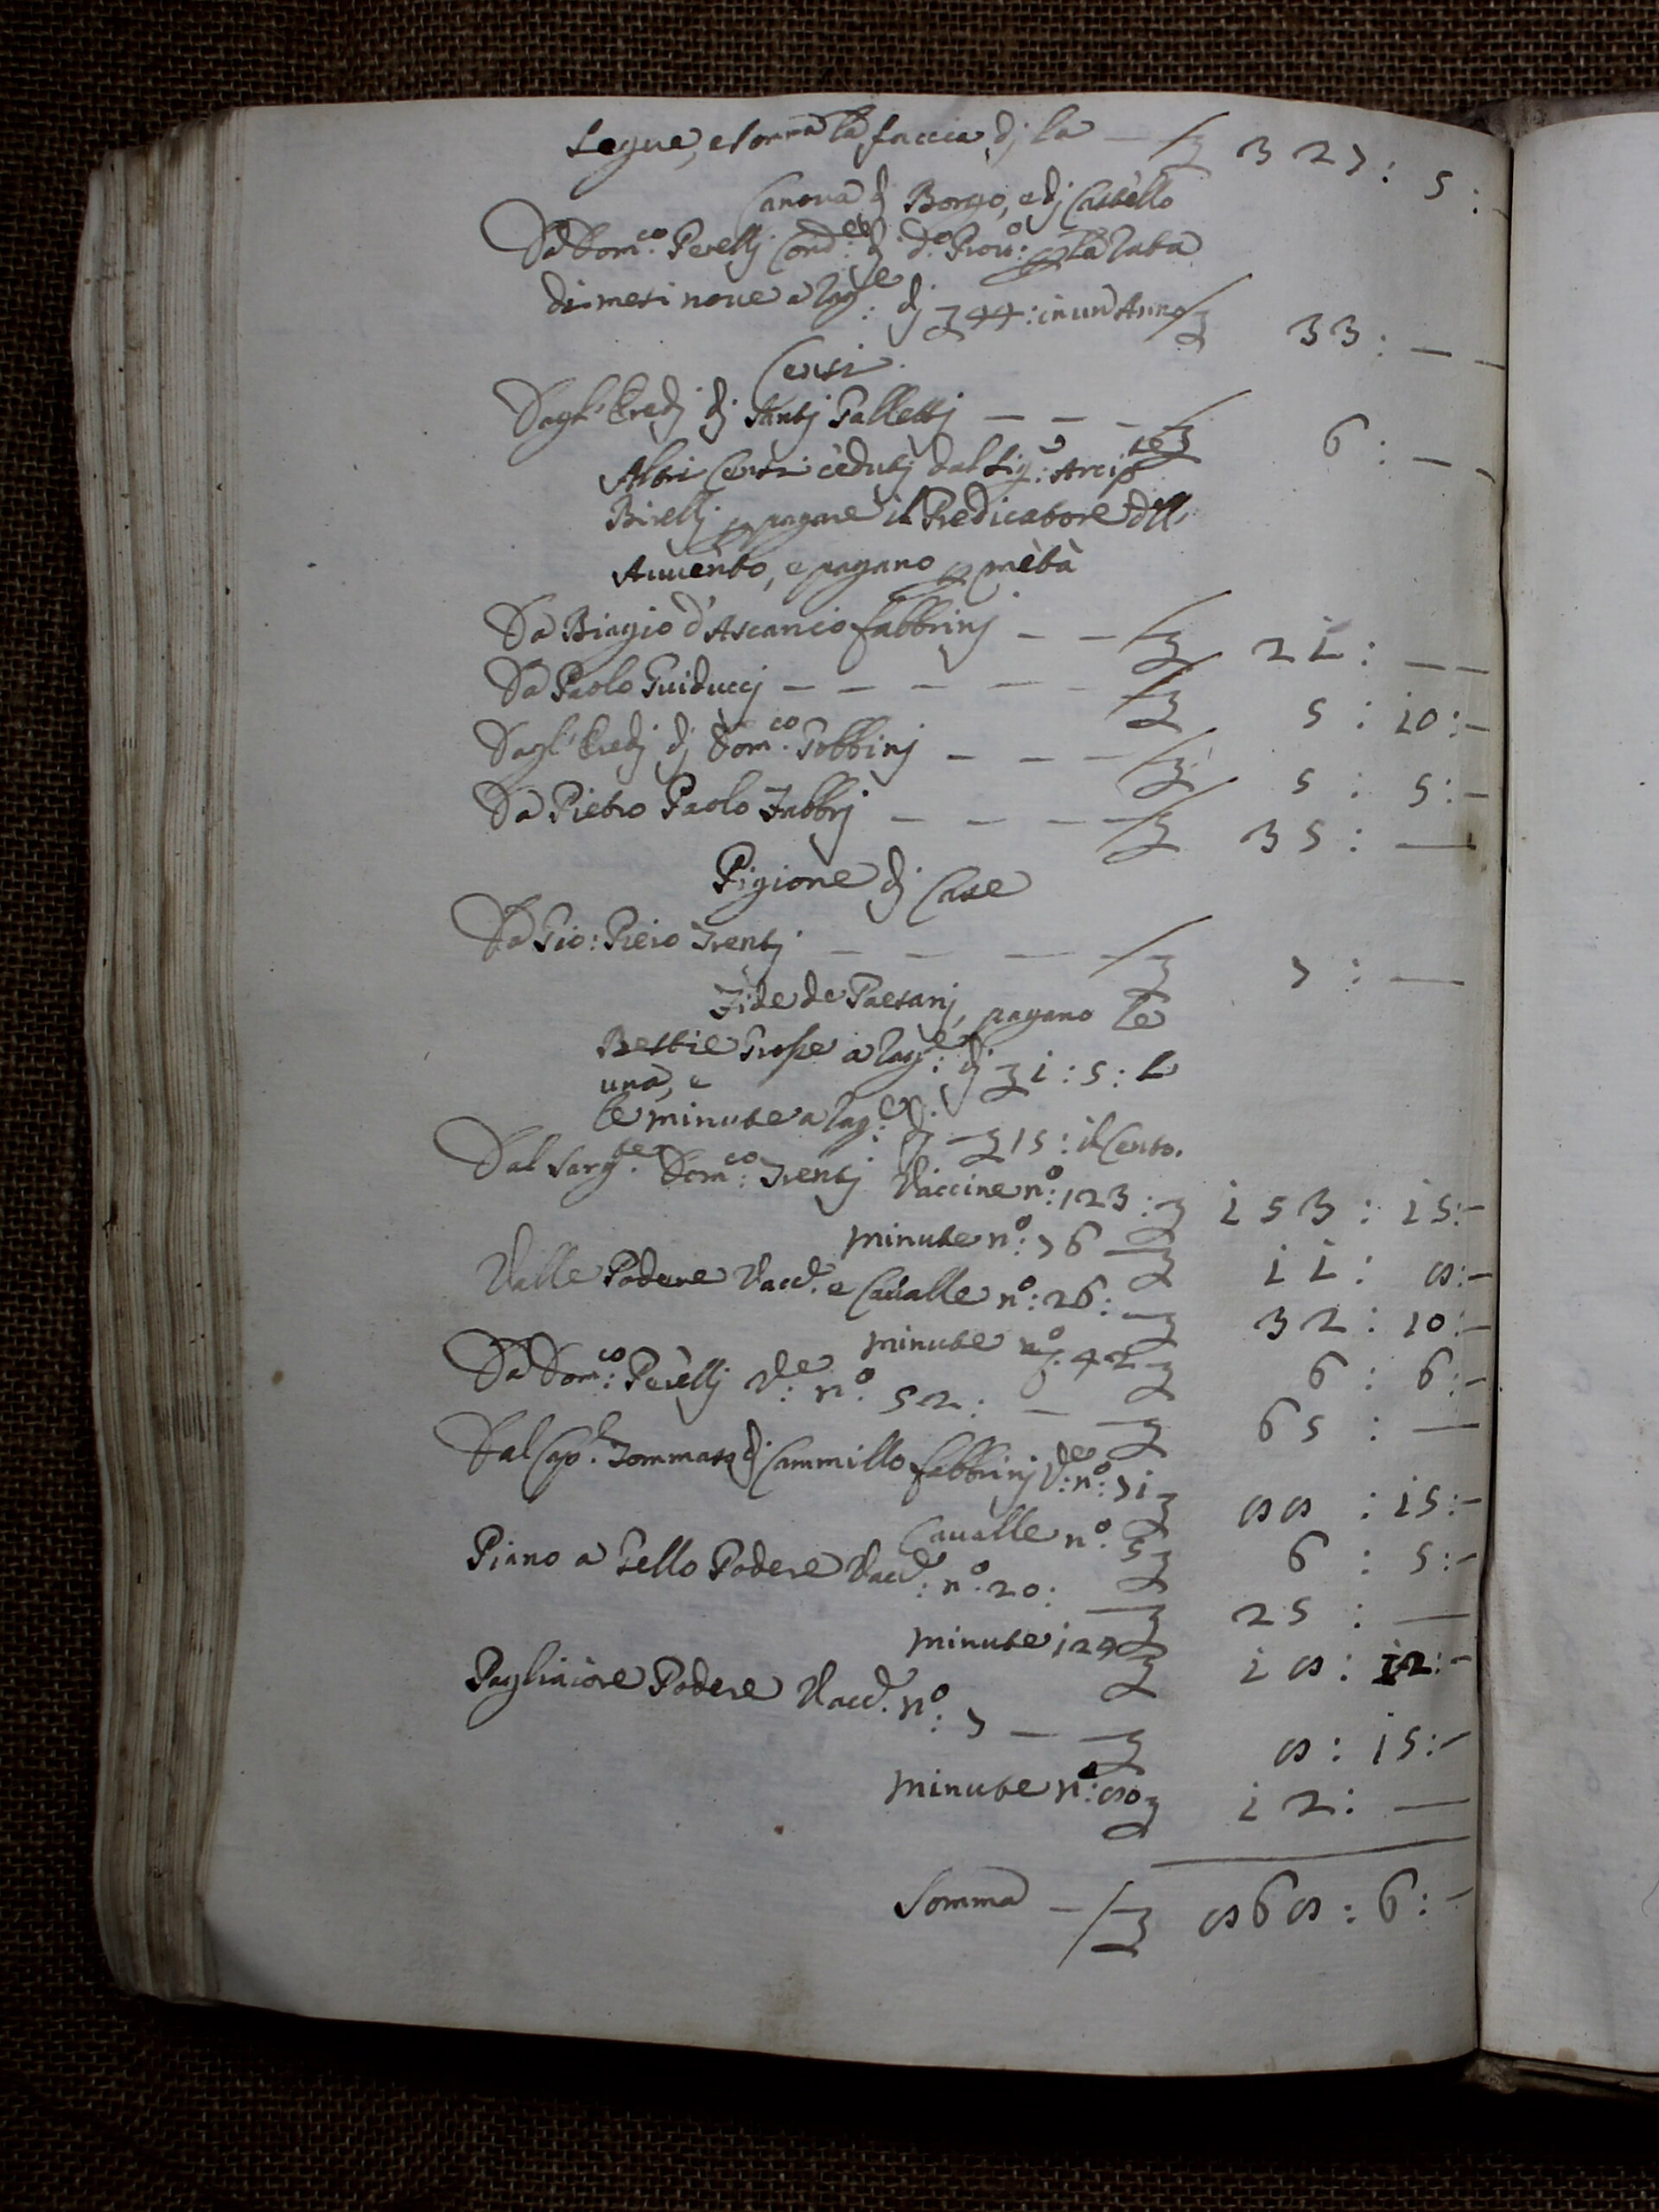 Segue, e somma la faccia dj la — £ 327 : 5 : —
Canova dj Borgo, e dj Castello
Da Dom.co Perellj Cond.re dj d.o Prov.o p la Tassa
di mesi nove a rag.e dj £ 44 : in un Anno £ 33 : — —
Censi
Dagl' Eredj dj Santj Pallettj — — — £ 6 : — —
Altri Censi cedutj dal Sig.r Arcip.te
Birellj p pagare il Predicatore dell'
Auuento, e pagano p metà
Da Biagio d'Ascanio Fabbrinj — — £ 21 : — —
Da Paolo Guiduccj — — — — — £ 5 : 10 : —
Dagl' Eredj dj Dom.co Gobbinj — — — £ 5 : 5 : —
Da Pietro Paolo Fabbrj — — — — £ 35 : —
Pigione dj Case
Da Gio: Piero Trentj — — — — £ 7 : —
Fide de Paesanj, pagano le
Bestie Grosse a rag.e dj £ 1 : 5 : l'
una, e
le minute a rag.e dj — £ 15 : il Cento.
Dal Sarg.te Dom.co Trentj Vaccine n.o 123 : £ 153 : 15 : —
minute n.o 76 — £ 11 : 8 : —
Valle Podere Vacc.e e Cavalle n.o 26 : — £ 32 : 10 : —
minute n.o 42 £ 6 : 6 : —
Da Dom.co Perellj V.e n.o 52 : — — £ 65 : —
Dal Cap.l Tommaso dj Cammillo Fabbrinj V.e n.o 71 £ 88 : 15 : —
Cavalle n.o 5 £ 6 : 5 : —
Piano a Gello Podere Vacc.e n.o 20 : — £ 25 : —
minute 124 £ 18 : 12 : —
Pagliaiore Podere Vacc.e n.o 7 — — £ 8 : 15 : —
minute n.o 80 £ 12 : —
Somma — £ 868 : 6 : —